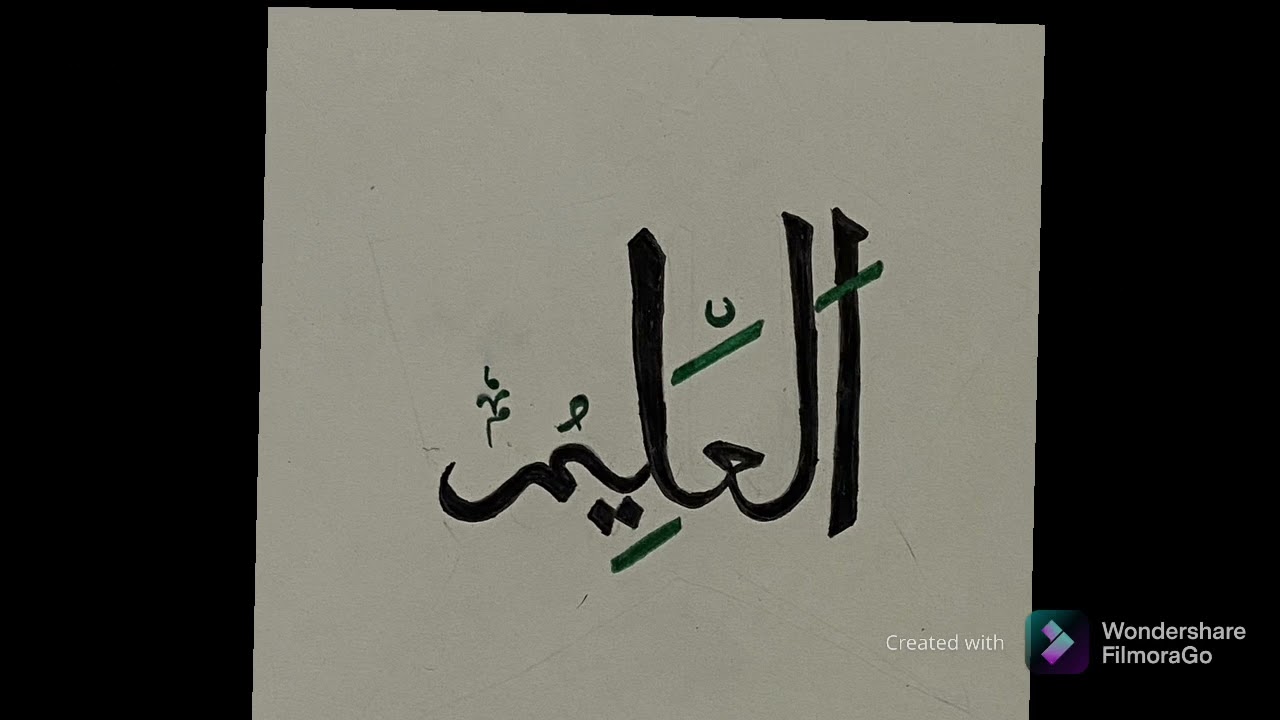 اَلْعَلِيمُ
Created with
Wondershare
FilmoraGo